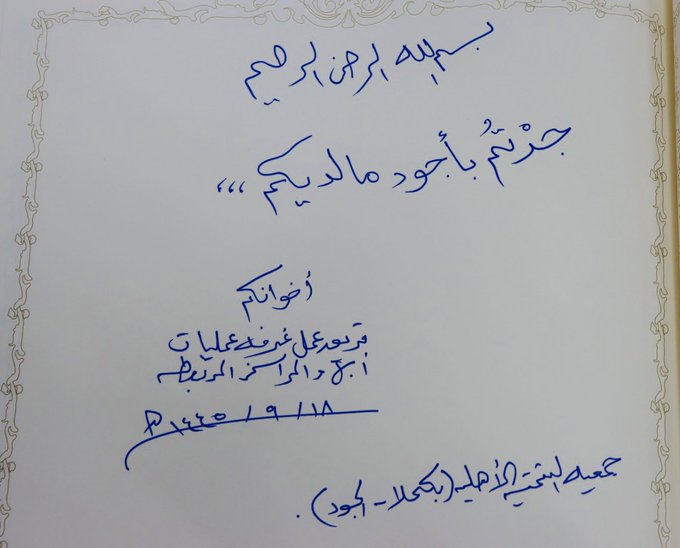 بسم الله الرحمن الرحيم
جدْتمُ بأجود ما لديكم ،،،
أخوانكم
فريق عمل غرفة عمليات
أبها والمراكز المرتبطه
١٤٤٥/٩/١٨ هـ
جمعيه التنميه الأهليه (بكحلا - الجود) .